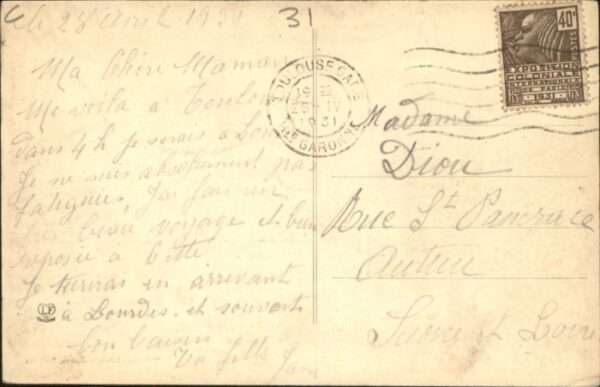 le 28 Avril 1931
31
Ma Chère Maman
Me voilà à Toulouse
dans 4 h je serais à Lourdes
Je ne suis absolument pas
fatiguée, J'ai fais un
beau voyage et bien
reposée à
Je t'écrirai en arrivant
à Lourdes et souvent
bons baisers
Ta fille
TOULOUSE GARE
19
IV
1931
Hte GARONNE
40c
EXPOSITION
COLONIALE
INTERNATIONALE
PARIS
1931
Madame
Diou
Rue St Pancrace
Autun
Saône et Loire